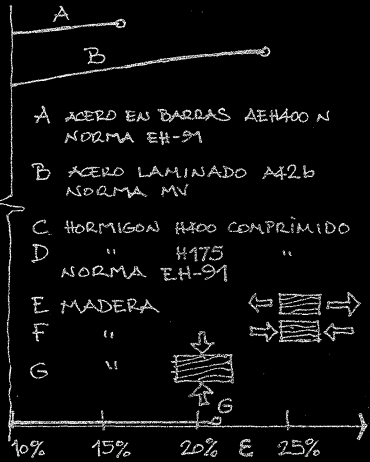 A
B
A ACERO EN BARRAS AEH400 N
NORMA EH-91
B ACERO LAMINADO A42b
NORMA MV
C HORMIGON H400 COMPRIMIDO
D " H175 "
NORMA EH-91
E MADERA
F "
G "
G
10% 15% 20% ε 25%